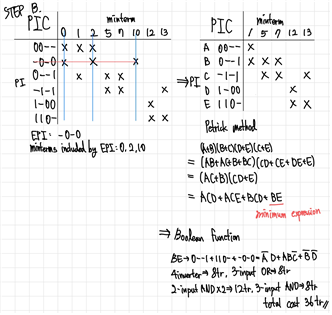 STEP B.
PIC minterm
0 1 2 5 7 10 12 13
00-- X X X
-0-0 X X X
PI 0--1 X X X
-1-1 X X X
1-00 X
110- X X
EPI: -0-0
minterms included by EPI: 0, 2, 10
⇒ PI
PIC minterm
1 5 7 12 13
A 00-- X
B 0--1 X X X
C -1-1 X X X
D 1-00 X
E 110- X X
Petrick method
(A+B)(B+C)(D+E)(C+E)
= (AB+AC+B+BC)(CD+CE+DE+E)
= (AC+B)(CD+E)
= ACD+ACE+BCD+BE
minimum expression
⇒ Boolean function
BE → 0--1 + 110- + -0-0 = A̅D + ABC̅ + B̅D̅
4inverter → 8tr, 3-input OR → 8tr
2-input AND×2 → 12tr, 3-input AND → 8tr
total cost 36tr